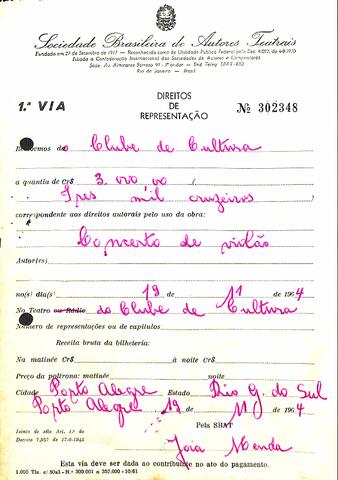 Sociedade Brasileira de Autores Teatrais
Fundada em 27 de Setembro de 1917 - Reconhecida como de Utilidade Pública Federal pelo Dec. 4.092, de 4-8-1920
Filiada à Confederação Internacional das Sociedades de Autores e Compositores
Séde: Av. Almirante Barroso 97 - 3º andar - End. Teleg. SBAT-RIO
Rio de Janeiro - Brasil
1.ª VIA
DIREITOS
DE
REPRESENTAÇÃO
Nº 302348
Recebemos do Clube de Cultura
a quantia de Cr$ 3.000,00 (
Tres mil cruzeiros
correspondente aos direitos autorais pelo uso da obra:
Concerto de violão
Autor(es)
no(s) dia(s) 19 11 de 1964
No Teatro ou Rádio do Clube de Cultura
Número de representações ou de capítulos
Receita bruta da bilheteria:
Na matinée Cr$ à noite Cr$
Preço da poltrona: matinée noite
Cidade Porto Alegre Estado Rio G. do Sul
Porto Alegre 19 11 de 1964
Pela SBAT
Isento de sêlo Art. 1.º do
Decreto 7.957 de 17-9-1945
Joia Menda
Esta via deve ser dada ao contribuinte no ato do pagamento.
1.000 Tls. c/ 50x3 - N.º 300.001 a 350.000 - 10/61